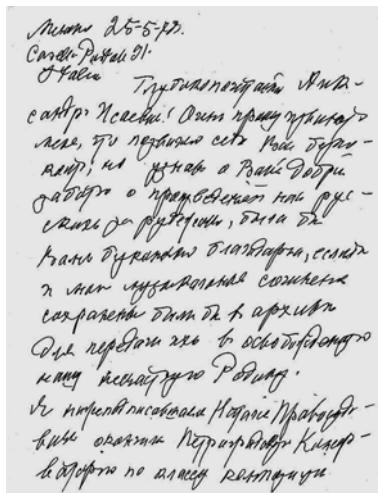 Мерано 25-5-73.
Casella Postale 91.
Italia
Глубокопочтаемый Алек-
сандръ Исаевич! Очень прошу извинить
меня, что позволяю себе Вас беспо-
коить, но узнав о Вашей доброй
заботе о произведениях наших рус-
скихъ за рубежомъ, была бы
Вамъ бесконечно благодарна, если бы
и мои музыкальные сочинения
сохранены были бы в архивах
для передачи ихъ в освобожденную
нашу несчастную Родину.
Я нижеподписавшаяся Наталия Правосудо-
вич окончила Петроградскую Консер-
ваторию по классу композиции